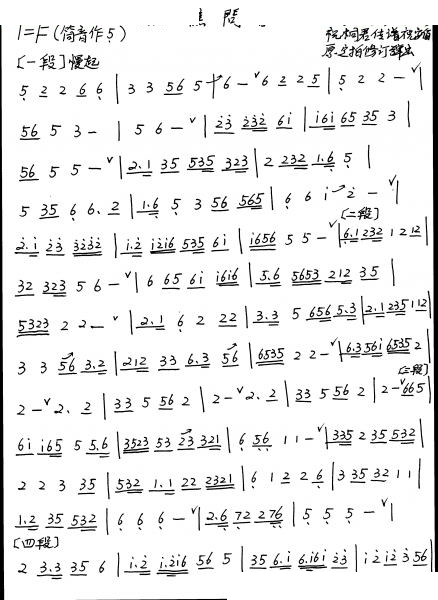 樵問
1=F (筒音作5)
[一段] 慢起
5 2 2 6 6 | 3 3 56 5 | 6 - ∨6 2 2 5 | 5 2 2 - ∨ |
56 5 3 - | 5 6 - ∨ | 23 232 6i | i6i 65 35 3 |
56 5 5 - ∨ | 2.1 35 535 323 | 2 232 1.6 5 |
5 35 6 6. 2 | 1.6 5 3 56 565 | 6 6 i → 2 - ∨ |
[二段]
2.i 23 3232 | i.2 i2i6 535 6i | i656 5 5 - ∨ | 6.1 232 1 2 12 |
32 323 5 6 - ∨ | 6 65 6i i6i6 | 5.6 5653 212 35 |
5323 2 2 - ∨ | 2.1 6 2 22 | 3.3 5 656 5.3 | 2.1 235 1 12 |
3 3 56 3.2 | 212 33 6.3 56 | 6535 2 2 - ∨ | 6.3 56i 6535 2 |
[三段]
2 - ∨ 2. 2 | 33 5 56 2 | 2 - ∨ 2. 2 | 33 5 56 2 | 2 - ∨665 |
6i i65 5 5.6 | 3523 53 23 321 | 6 56 1 1 - ∨ | 335 2 35 532 |
2 2 3 35 | 532 1.1 22 2321 | 6 1 2 2 6 | 3 35 32 1 1 |
1.2 35 532 | 6 6 6 - ∨ | 2.6 72 276 | 5 5 5 - ∨ |
[四段]
2 3.3 35 6 | i.2 i.2i6 56 5 | 35 6.i 6.i6i 23 | i 2 i2 3 56 |